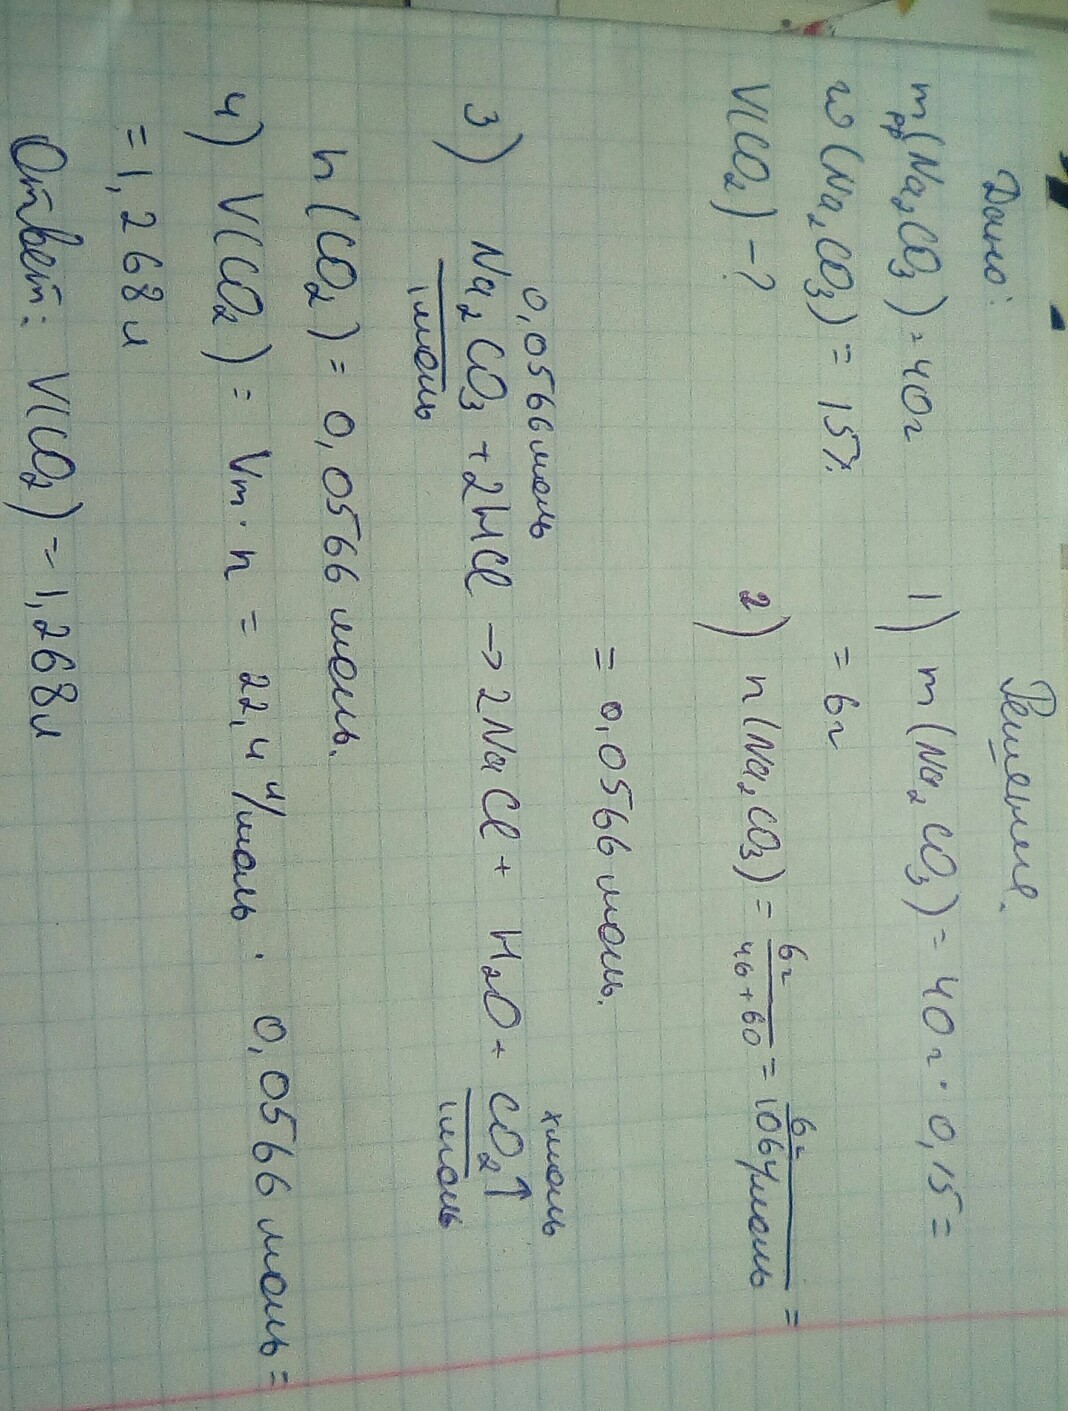 Дано:
mрр(Na₂CO₃) = 40г
w(Na₂CO₃) = 15%
V(CO₂) - ?
Решение.
1) m(Na₂CO₃) = 40г · 0,15 =
= 6г
2) n(Na₂CO₃) = 6г/46+60 = 6г/106г/моль =
= 0,0566 моль.
0,0566моль х моль
3) Na₂CO₃ + 2HCl → 2NaCl + H₂O + CO₂↑
1моль 1моль
n(CO₂) = 0,0566 моль.
4) V(CO₂) = Vm · n = 22,4 л/моль · 0,0566 моль =
= 1,268 л
Ответ: V(CO₂) = 1,268 л